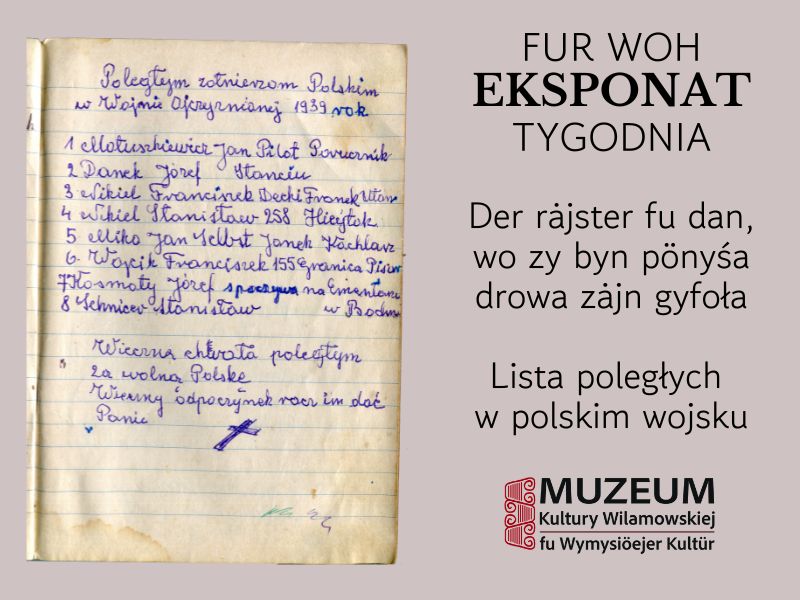 Poległym żołnierzom Polskim
w Wojnie Ojczyznianej 1939 rok
1 Matuszkiewicz Jan Pilot Porucznik
2 Danek Józef Stanciu
3 Nikiel Franciszek Dechi Franek Utan
4 Nikiel Stanisław 258 Hicyjtok
5 Mika Jan Selbst Janek Kochlarz
6 Wojcik Franciszek 155 Granica
7 Kosmaty Józef spoczywa na
8 Schnicer Stanisław w
Wieczna chwała poległym
za wolną Polskę
Wieczny odpoczynek racz im dać
Panie
FUR WOH
EKSPONAT
TYGODNIA
Der rȧjster fu dan,
wo zy byn pönyśa
drowa zȧjn gyfoła
Lista poległych
w polskim wojsku
MUZEUM
Kultury Wilamowskiej
fu Wymysiöejer Kultür